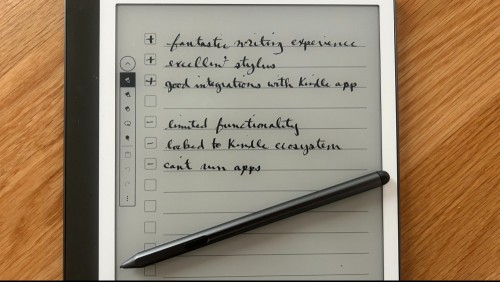 + fantastic writing experience
+ excellent stylus
+ good integrations with Kindle app
- limited functionality
- locked to Kindle ecosystem
- can't run apps